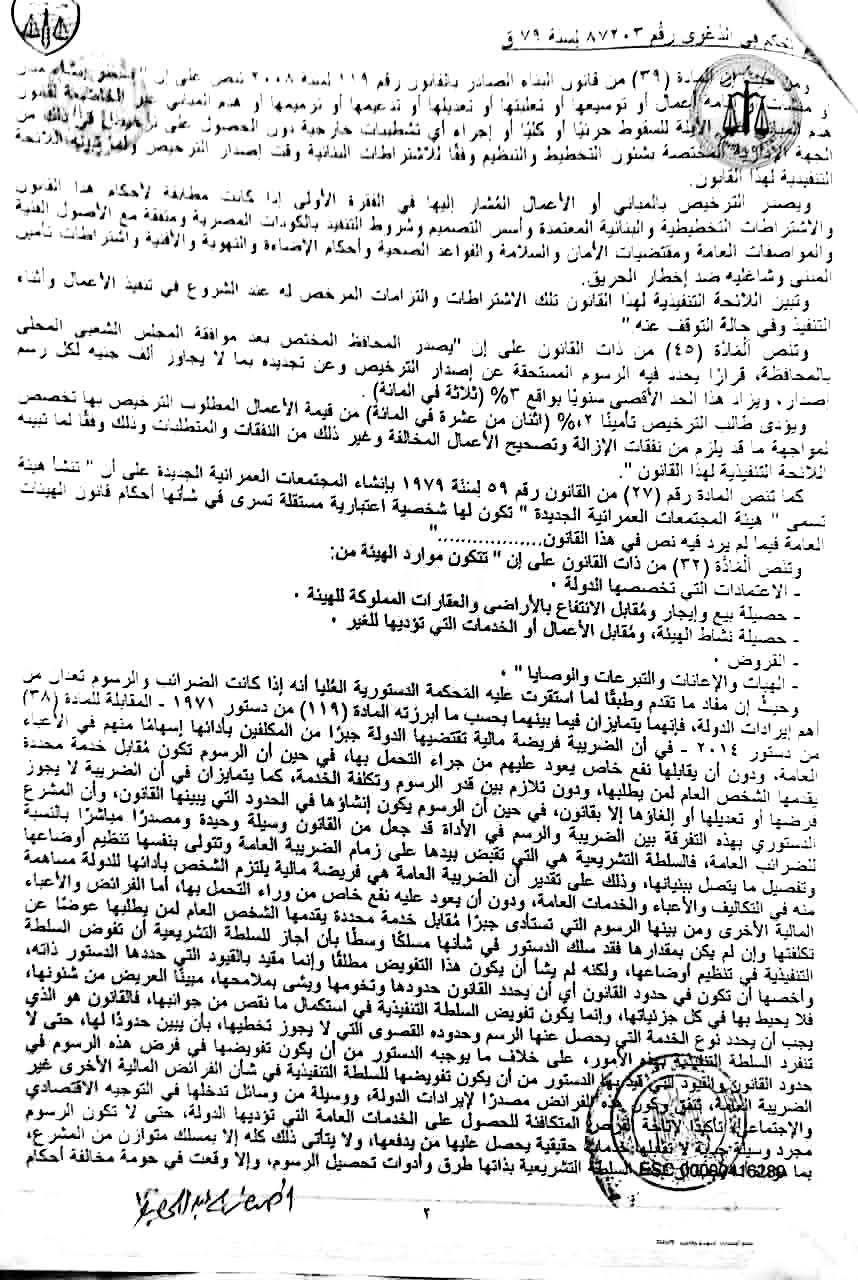 الحكم في الدعوى رقم ٨٧٢٠٣ لسنة ٧٩ ق
ومن حيث إن المادة (٣٩) من قانون البناء الصادر بالقانون رقم ١١٩ لسنة ٢٠٠٨ تنص على إن "يحظر إنشاء مبان
أو منشآت أو إقامة أعمال أو توسيعها أو تعليتها أو تعديلها أو تدعيمها أو ترميمها أو هدم المباني غير الخاضعة لقانون
هدم المباني غير الآيلة للسقوط جزئيًا أو كليًا أو إجراء أي تشطيبات خارجية دون الحصول على ترخيص في ذلك من
الجهة الإدارية المختصة بشئون التخطيط والتنظيم وفقًا للاشتراطات البنائية وقت إصدار الترخيص ولما تبينه اللائحة
التنفيذية لهذا القانون.
ويصدر الترخيص بالمباني أو الأعمال المُشار إليها في الفقرة الأولى إذا كانت مطابقة لأحكام هذا القانون
والاشتراطات التخطيطية والبنائية المعتمدة وأسس التصميم وشروط التنفيذ بالكودات المصرية ومتفقة مع الأصول الفنية
والمواصفات العامة ومقتضيات الأمان والسلامة والقواعد الصحية وأحكام الإضاءة والتهوية والأفنية واشتراطات تأمين
المبنى وشاغليه ضد إخطار الحريق.
وتبين اللائحة التنفيذية لهذا القانون تلك الاشتراطات والتزامات المرخص له عند الشروع في تنفيذ الأعمال وأثناء
التنفيذ وفي حالة التوقف عنه "
وتنص اَلْمَادَّة (٤٥) من ذات القانون على إن "يصدر المحافظ المختص بعد موافقة المجلس الشعبى المحلى
بالمحافظة، قرارًا يحدد فيه الرسوم المستحقة عن إصدار الترخيص وعن تجديده بما لا يجاوز ألف جنيه لكل رسم
إصدار، ويزاد هذا الحد الأقصى سنويًا بواقع ٣% (ثلاثة في المائة) .
ويؤدى طالب الترخيص تأمينًا ٠,٢% (اثنان من عشرة في المائة) من قيمة الأعمال المطلوب الترخيص بها تخصص
لمواجهة ما قد يلزم من نفقات الإزالة وتصحيح الأعمال المخالفة وغير ذلك من النفقات والمتطلبات وذلك وفقًا لما تبينه
اللائحة التنفيذية لهذا القانون ".
كما تنص المادة رقم (٢٧) من القانون رقم ٥٩ لِسَنَة ١٩٧٩ بإنشاء المجتمعات العمرانية الجديدة على أن " تنشأ هيئة
تسمى " هيئة المجتمعات العمرانية الجديدة " تكون لها شخصية اعتبارية مستقلة تسرى في شأنها أحكام قانون الهيئات
العامة فيما لم يرد فيه نص في هذا القانون................."
وتنص اَلْمَادَّة (٣٢) من ذات القانون على إن " تتكون موارد الهيئة من:
- الاعتمادات التي تخصصها الدولة .
- حصيلة بيع وإيجار ومُقابل الانتفاع بالأراضى والعقارات المملوكة للهيئة .
- حصيلة نشاط الهيئة، ومُقابل الأعمال أو الخدمات التي تؤديها للغير .
- القروض .
- الهبات والإعانات والتبرعات والوصايا " .
وحيث إن مفاد ما تقدم وطبقًا لما استقرت عليه المَحكمة الدستورية العُليا أنه إذا كانت الضرائب والرسوم تعدان من
أهم إيرادات الدولة، فإنهما يتمايزان فيما بينهما بحسب ما أبرزته المادة (١١٩) من دستور ١٩٧١ - المقابلة للمادة (٣٨)
من دستور ٢٠١٤ - في أن الضريبة فريضة مالية تقتضيها الدولة جبرًا من المكلفين بأدائها إسهامًا منهم في الأعباء
العامة، ودون أن يقابلها نفع خاص يعود عليهم من جراء التحمل بها، في حين أن الرسوم تكون مُقابل خدمة محددة
يقدمها الشخص العام لمن يطلبها، ودون تلازم بين قدر الرسوم وتكلفة الخدمة، كما يتمايزان في أن الضريبة لا يجوز
فرضها أو تعديلها أو إلغاؤها إلا بقانون، في حين أن الرسوم يكون إنشاؤها في الحدود التي يبينها القانون، وأن المشرع
الدستوري بهذه التفرقة بين الضريبة والرسم في الأداة قد جعل من القانون وسيلة وحيدة ومصدرًا مباشرًا بالنسبة
للضرائب العامة، فالسلطة التشريعية هي التي تقبض بيدها على زمام الضريبة العامة وتتولى بنفسها تنظيم أوضاعها
وتفصيل ما يتصل ببنيانها، وذلك على تقدير أن الضريبة العامة هي فريضة مالية يلتزم الشخص بأدائها للدولة مساهمة
منه في التكاليف والأعباء والخدمات العامة، ودون أن يعود عليه نفع خاص من وراء التحمل بها، أما الفرائض والأعباء
المالية الأخرى ومن بينها الرسوم التي تستأدى جبرًا مُقابل خدمة محددة يقدمها الشخص العام لمن يطلبها عوضًا عن
تكلفتها وإن لم يكن بمقدارها فقد سلك الدستور في شأنها مسلكًا وسطًا بأن أجاز للسلطة التشريعية أن تفوض السلطة
التنفيذية في تنظيم أوضاعها، ولكنه لم يشأ أن يكون هذا التفويض مطلقًا وإنما مقيد بالقيود التي حددها الدستور ذاته،
وأخصها أن تكون في حدود القانون أي أن يحدد القانون حدودها وتخومها ويشى بملامحها، مبينًا العريض من شئونها،
فلا يحيط بها في كل جزئياتها، وإنما يكون تفويض السلطة التنفيذية في استكمال ما نقص من جوانبها، فالقانون هو الذي
يجب أن يحدد نوع الخدمة التي يحصل عنها الرسم وحدوده القصوى التي لا يجوز تخطيها، بأن يبين حدودًا لها، حتى لا
تنفرد السلطة التنفيذية بهذه الأمور، على خلاف ما يوجبه الدستور من أن يكون تفويضها في فرض هذه الرسوم في
حدود القانون والقيود التي قيد بها الدستور من أن يكون تفويضها للسلطة التنفيذية في شأن الفرائض المالية الأخرى غير
الضريبة العامة، تتفق وكون هذه الفرائض مصدرًا لإيرادات الدولة، ووسيلة من وسائل تدخلها في التوجيه الاقتصادي
والإجتماعي تأكيدًا لإتاحة الفرص المتكافئة للحصول على الخدمات العامة التي تؤديها الدولة، حتى لا تكون الرسوم
مجرد وسيلة جباية لا تقابلها خدمات حقيقية يحصل عليها من يدفعها، ولا يتأتى ذلك كله إلا بمسلك متوازن من المشرع،
السلطة التشريعية بذاتها طرق وأدوات تحصيل الرسوم، وإلا وقعت في حومة مخالفة أحكام
ESC 00090416289
٢